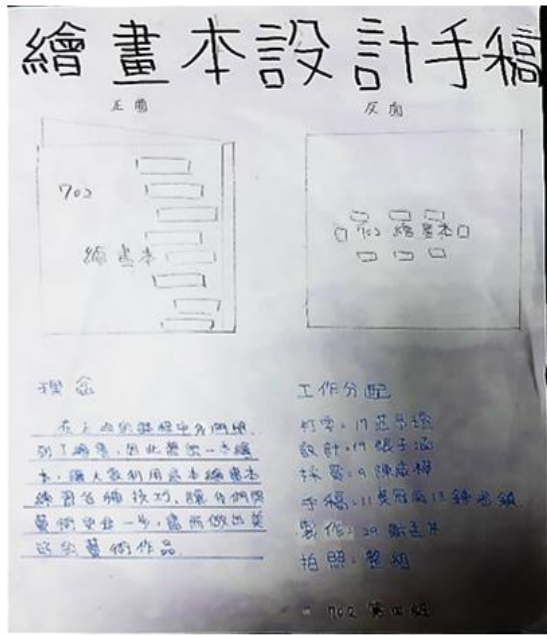 繪畫本設計手稿
正面
反面
702
繪畫本
702 繪畫本
理念
在上次的課程中我們學
到了繪畫,因此想做一本繪
本,讓大家利用這本繪畫本
練習各種技巧,讓我們與
藝術更進一步,進而做出美
好的藝術作品。
工作分配
打字:17
設計:19 張子涵
採買:9 陳
手稿:11 13
製作:29
拍照:整組
702 第四組